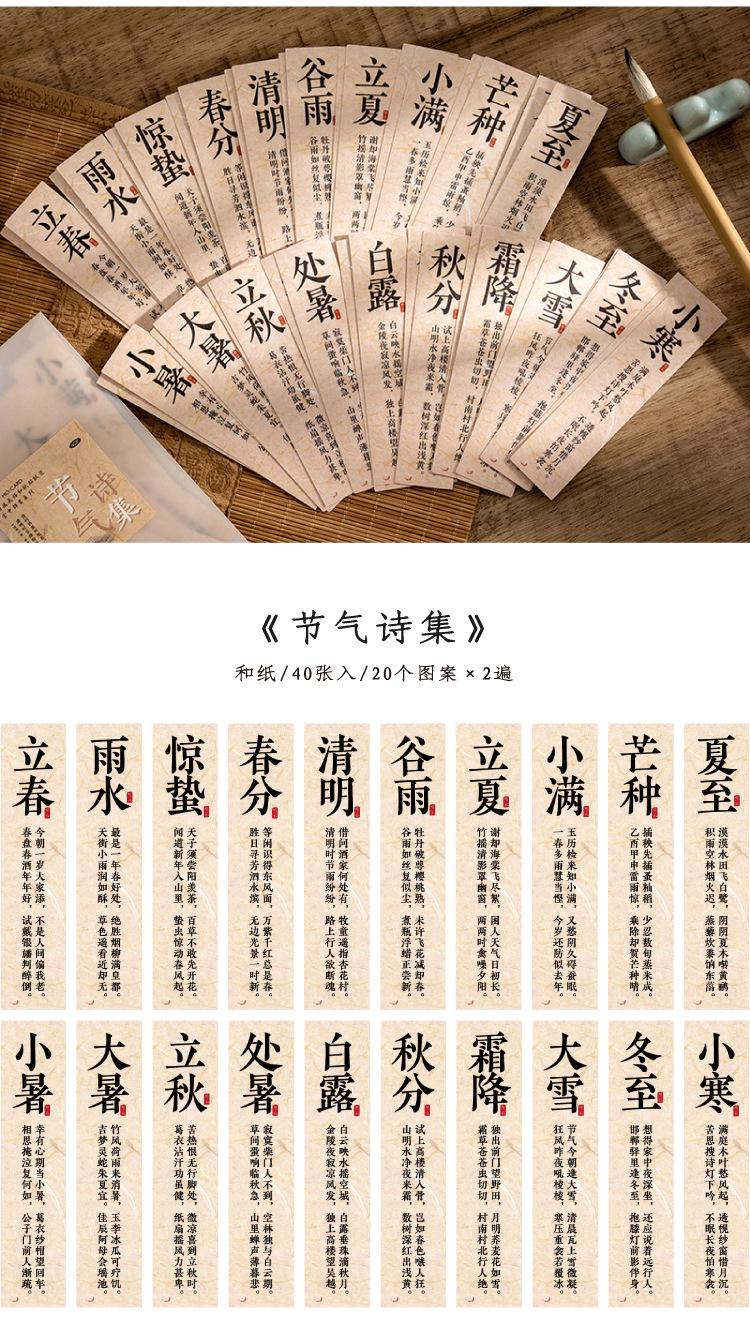 立春
雨水
惊蛰
春分
清明
谷雨
立夏
小满
芒种
夏至
小暑
大暑
立秋
处暑
白露
秋分
霜降
大雪
冬至
小寒
节气
诗集
《节气诗集》
和纸/40张入/20个图案×2遍
立春
春盘春酒年年好，试戴银旛判醉倒。
今朝一岁大家添，不是人间偏我老。
雨水
天街小雨润如酥，草色遥看近却无。
最是一年春好处，绝胜烟柳满皇都。
惊蛰
闻道新年入山里，蛰虫惊动春风起。
天子须尝阳羡茶，百草不敢先开花。
春分
胜日寻芳泗水滨，无边光景一时新。
等闲识得东风面，万紫千红总是春。
清明
清明时节雨纷纷，路上行人欲断魂。
借问酒家何处有，牧童遥指杏花村。
谷雨
谷雨如丝复似尘，煮瓶浮蜡正尝新。
牡丹破萼樱桃熟，未许飞花减却春。
立夏
竹摇清影罩幽窗，两两时禽噪夕阳。
谢却海棠飞尽絮，困人天气日初长。
小满
一春多雨慧当悭，今岁还防似去年。
玉历检来知小满，又愁阴久碍蚕眠。
芒种
乙酉甲申雷雨惊，乘除却贺芒种晴。
插秧先插蚤籼稻，少忍数旬蒸米成。
夏至
积雨空林烟火迟，蒸藜炊黍饷东菑。
漠漠水田飞白鹭，阴阴夏木啭黄鹂。
小暑
相思掩泣复何如，公子门前人渐疏。
幸有心期当小暑，葛衣纱帽望回车。
大暑
吉梦灵蛇朱夏宜，佳辰阿母会瑶池。
竹风荷雨来消暑，玉李冰瓜可疗饥。
立秋
葛衣沾汗功虽健，纸扇摇风力甚卑。
苦热恨无行脚处，微凉喜到立秋时。
处暑
草间蛩响临秋急，山里蝉声薄暮悲。
寂寞柴门人不到，空林独与白云期。
白露
金陵夜寂凉风发，独上高楼望吴越。
白云映水摇空城，白露垂珠滴秋月。
秋分
山明水净夜来霜，数树深红出浅黄。
试上高楼清入骨，岂如春色嗾人狂。
霜降
霜草苍苍虫切切，村南村北行人绝。
独出前门望野田，月明荞麦花如雪。
大雪
狂风昨夜吼棱棱，寒压重衾若覆冰。
节气今朝逢大雪，清晨瓦上雪微凝。
冬至
邯郸驿里逢冬至，抱膝灯前影伴身。
想得家中夜深坐，还应说着远行人。
小寒
苦思搜诗灯下吟，不眠长夜怕寒衾。
满庭木叶愁风起，透幌纱窗惜月沉。